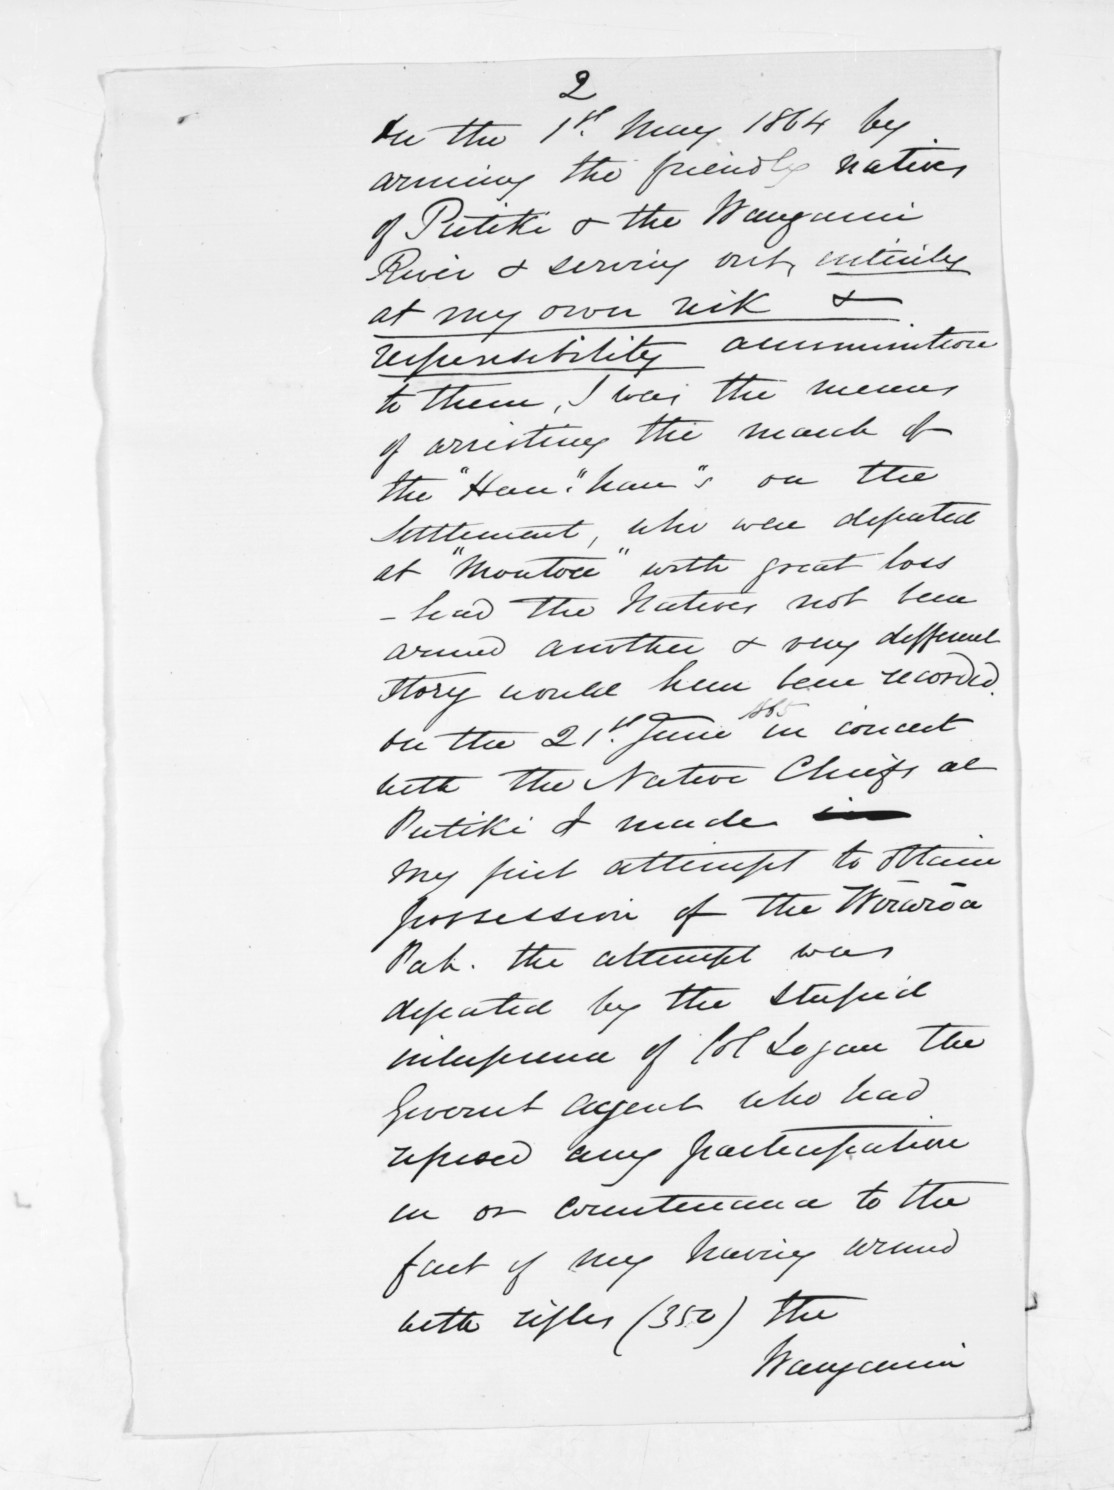 2
On the 1st. May 1864 by
arming the friendly natives
of Putiki & the Wanganui
River & serving out, entirely
at my own risk &
responsibility ammunition
to them, I was the means
of arresting the march of
the "Hau: hau"s on the
Settlement, who were defeated
at "Moutoa" with great loss
- had the Natives not been
armed another & very different
story would have been recorded.
On the 21st. June 1865 in concert
with the Native Chiefs at
Putiki I made
my first attempt to obtain
possession of the Wēraroa
Pah. the attempt was
defeated by the stupid
interference of Col Logan the
Governt Agent who had
refused any participation
in or countenance to the
fact of my having armed
with rifles (350) the
Wanganui